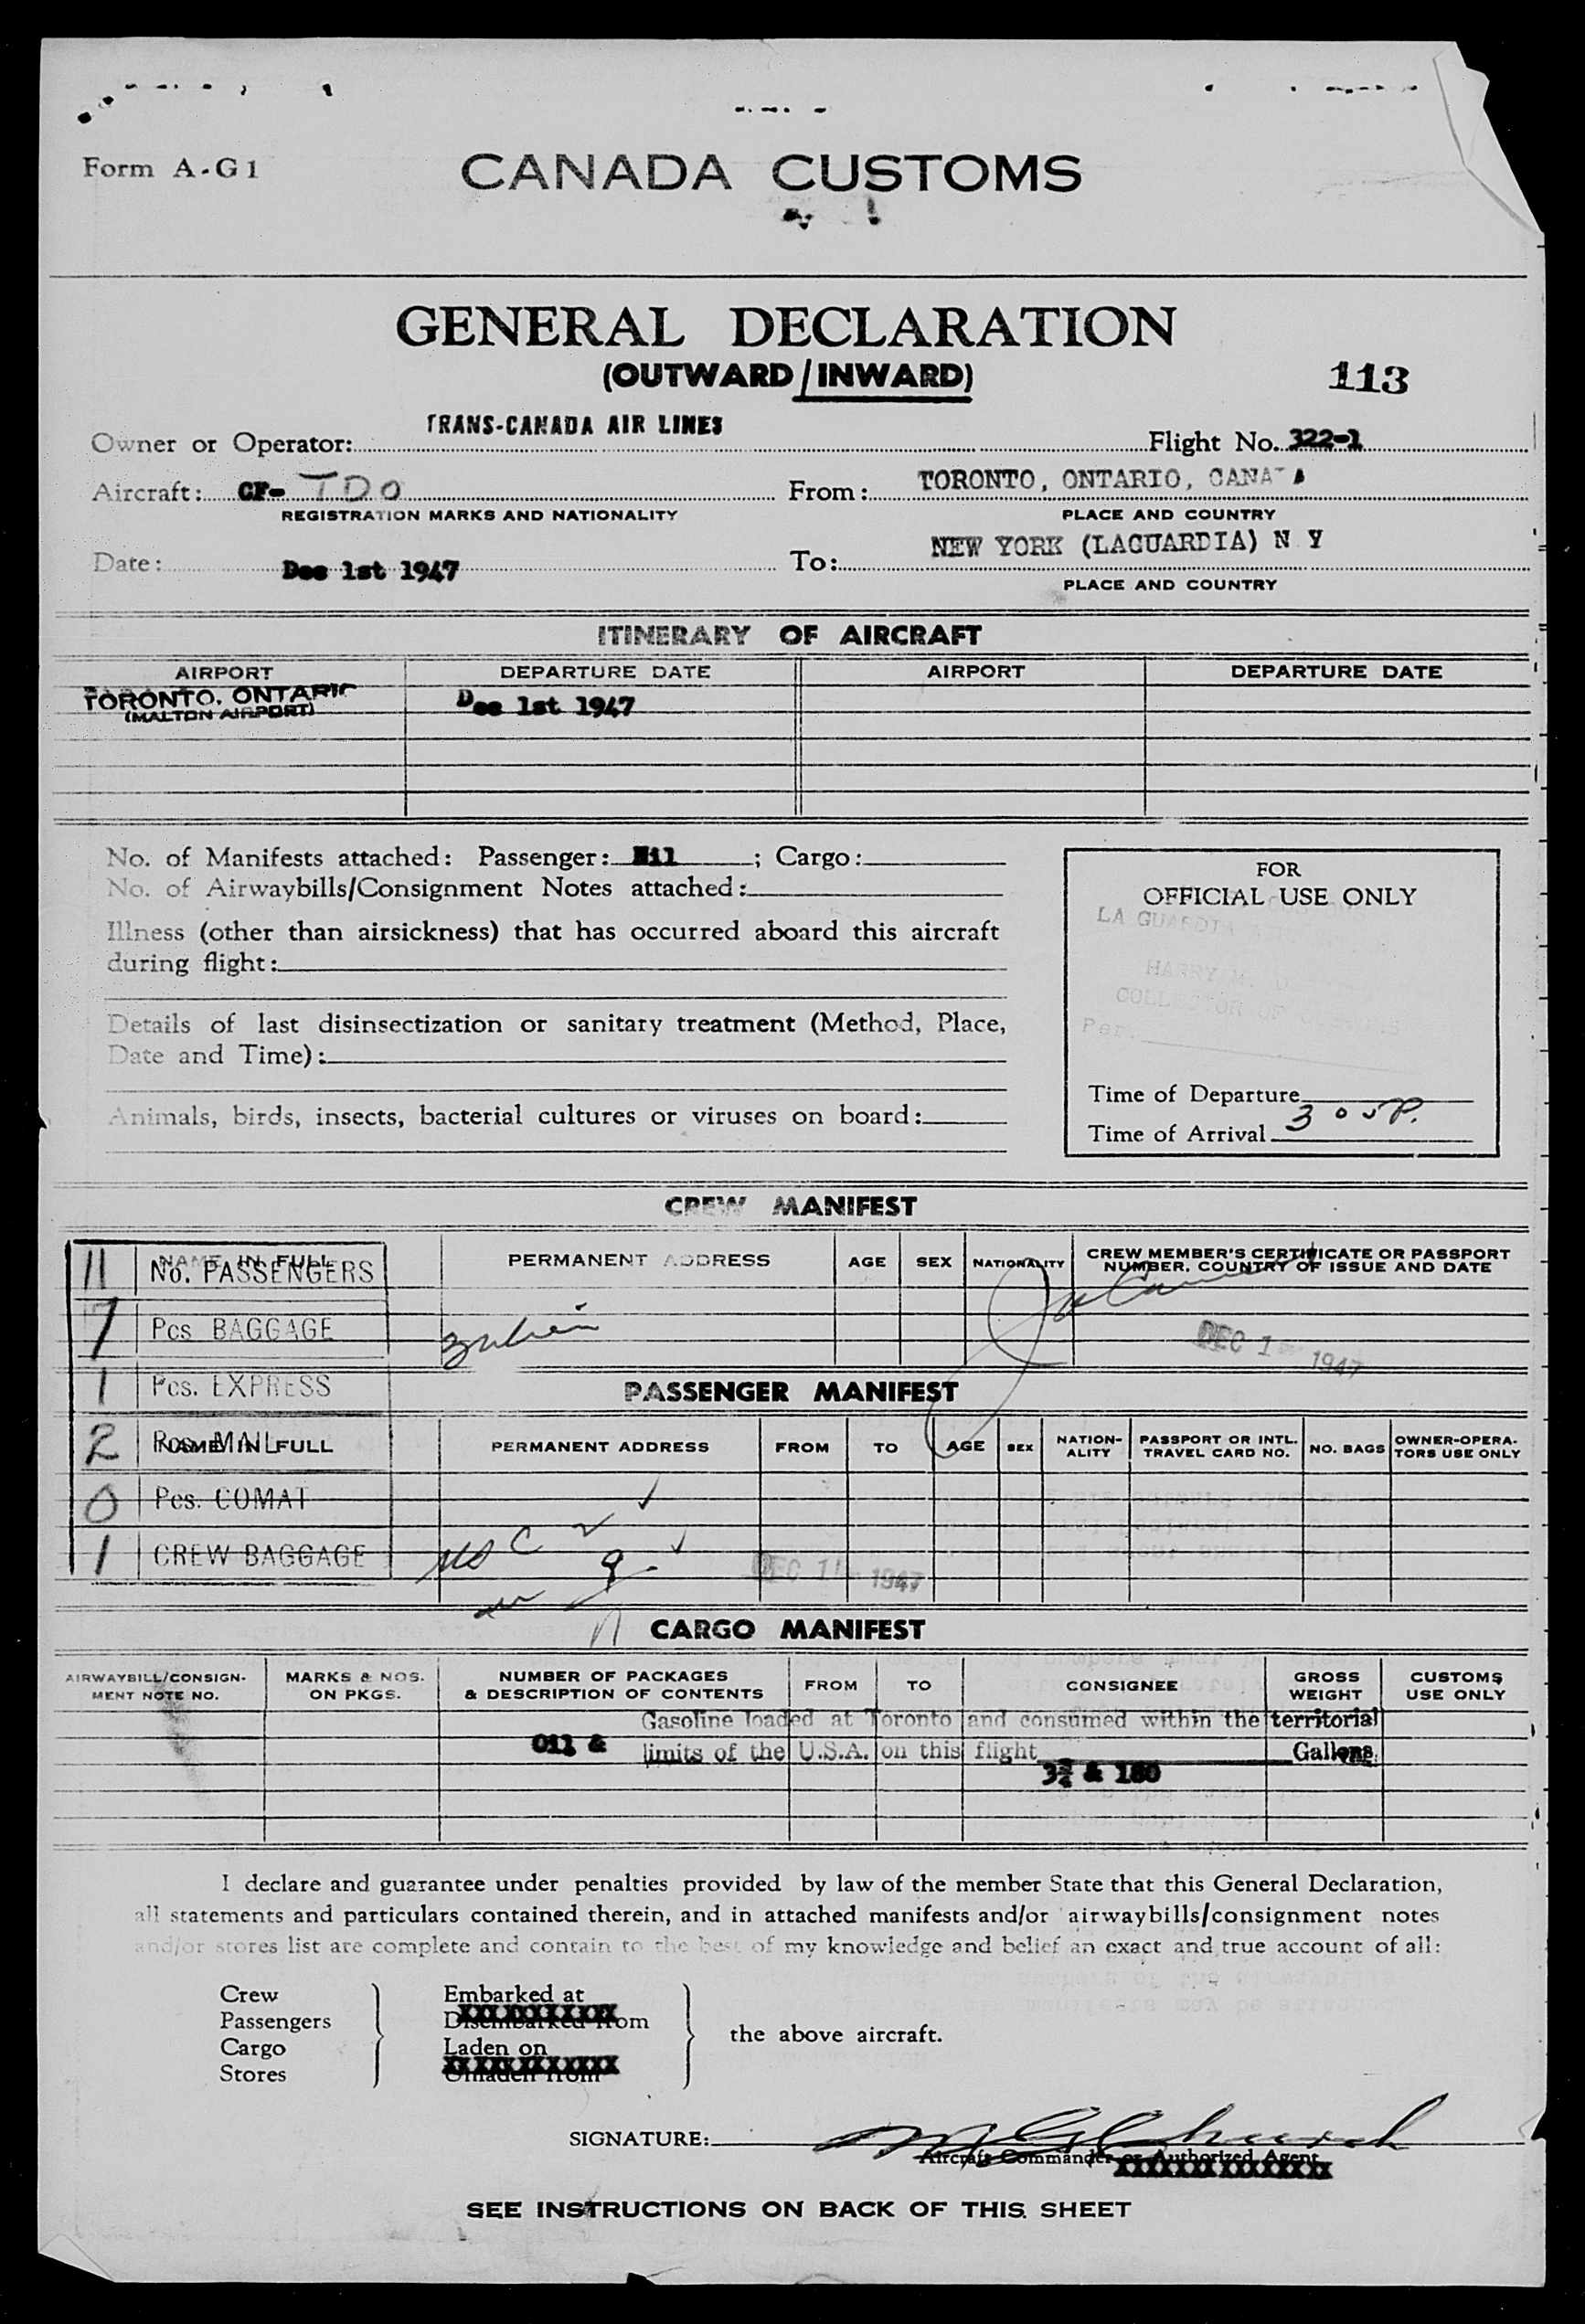 Form A-G1
CANADA CUSTOMS
GENERAL DECLARATION
(OUTWARD/INWARD)
113
TRANS-CANADA AIR LINES
Owner or Operator: Flight No. 322-1
Aircraft: CF- TDO From: TORONTO, ONTARIO, CANA A
REGISTRATION MARKS AND NATIONALITY PLACE AND COUNTRY
Date: Dec 1st 1947 To: NEW YORK (LAGUARDIA) N Y
PLACE AND COUNTRY
ITINERARY OF AIRCRAFT
AIRPORT DEPARTURE DATE AIRPORT DEPARTURE DATE
TORONTO, ONTARIO Dec 1st 1947
(MALTON AIRPORT)
No. of Manifests attached: Passenger: Nil ; Cargo:
No. of Airwaybills/Consignment Notes attached:
Illness (other than airsickness) that has occurred aboard this aircraft
during flight:
Details of last disinsectization or sanitary treatment (Method, Place,
Date and Time):
Animals, birds, insects, bacterial cultures or viruses on board:
FOR
OFFICIAL USE ONLY
LA GUARDIA
HARRY M.
COLLECTOR OF CUSTOMS
Per.
Time of Departure
Time of Arrival
CREW MANIFEST
NAME IN FULL PERMANENT ADDRESS AGE SEX NATIONALITY CREW MEMBER'S CERTIFICATE OR PASSPORT
NUMBER, COUNTRY OF ISSUE AND DATE
11 No. PASSENGERS
7 Pcs BAGGAGE
DEC 1 1947
1 Pcs. EXPRESS
PASSENGER MANIFEST
2 Pcs. MAIL
NAME IN FULL PERMANENT ADDRESS FROM TO AGE SEX NATION-
ALITY PASSPORT OR INTL.
TRAVEL CARD NO. NO. BAGS OWNER-OPERA-
TORS USE ONLY
0 Pcs. COMAT
1 CREW BAGGAGE
USC 2
9
DEC 1 1947
CARGO MANIFEST
AIRWAYBILL/CONSIGN-
MENT NOTE NO. MARKS & NOS.
ON PKGS. NUMBER OF PACKAGES
& DESCRIPTION OF CONTENTS FROM TO CONSIGNEE GROSS
WEIGHT CUSTOMS
USE ONLY
Gasoline loaded at Toronto and consumed within the territorial
Oil & limits of the U.S.A. on this flight Gallons.
3¾ & 180
I declare and guarantee under penalties provided by law of the member State that this General Declaration,
all statements and particulars contained therein, and in attached manifests and/or airwaybills/consignment notes
and/or stores list are complete and contain to the best of my knowledge and belief an exact and true account of all:
Crew Embarked at
Passengers Disembarked from
the above aircraft.
Cargo Laden on
Stores Unladen from
SIGNATURE:
Aircraft Commander or Authorized Agent
SEE INSTRUCTIONS ON BACK OF THIS SHEET